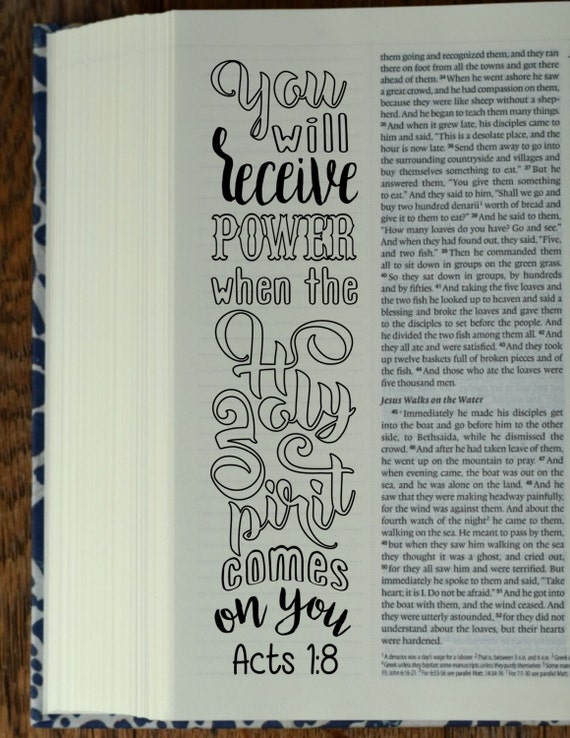 You
will
receive
POWER
when the
Holy
Spirit
comes
on you
Acts 1:8
them going and recognized them, and they ran
there on foot from all the towns and got there
ahead of them. 34 When he went ashore he saw
a great crowd, and he had compassion on them,
because they were like sheep without a shep-
herd. And he began to teach them many things.
35 And when it grew late, his disciples came to
him and said, "This is a desolate place, and the
hour is now late. 36 Send them away to go into
the surrounding countryside and villages and
buy themselves something to eat." 37 But he
answered them, "You give them something
to eat." And they said to him, "Shall we go and
buy two hundred denarii 1 worth of bread and
give it to them to eat?" 38 And he said to them,
"How many loaves do you have? Go and see."
And when they had found out, they said, "Five,
and two fish." 39 Then he commanded them
all to sit down in groups on the green grass.
40 So they sat down in groups, by hundreds
and by fifties. 41 And taking the five loaves and
the two fish he looked up to heaven and said a
blessing and broke the loaves and gave them
to the disciples to set before the people. And
he divided the two fish among them all. 42 And
they all ate and were satisfied. 43 And they took
up twelve baskets full of broken pieces and of
the fish. 44 And those who ate the loaves were
five thousand men.
Jesus Walks on the Water
45 Immediately he made his disciples get
into the boat and go before him to the other
side, to Bethsaida, while he dismissed the
crowd. 46 And after he had taken leave of them,
he went up on the mountain to pray. 47 And
when evening came, the boat was out on the
sea, and he was alone on the land. 48 And he
saw that they were making headway painfully,
for the wind was against them. And about the
fourth watch of the night 2 he came to them,
walking on the sea. He meant to pass by them,
49 but when they saw him walking on the sea
they thought it was a ghost, and cried out,
50 for they all saw him and were terrified. But
immediately he spoke to them and said, "Take
heart; it is I. Do not be afraid." 51 And he got into
the boat with them, and the wind ceased. And
they were utterly astounded, 52 for they did not
understand about the loaves, but their hearts
were hardened.
1 A denarius was a day's wage for a laborer 2 That is, between 3 A.M. and 6 A.M.
4 Greek unless they baptize; some manuscripts unless they purify themselves 5 Some
33; John 6:16-21 For 6:53-56 see parallel Matt. 14:34-36 For 7:1-30 see parallel Matt.